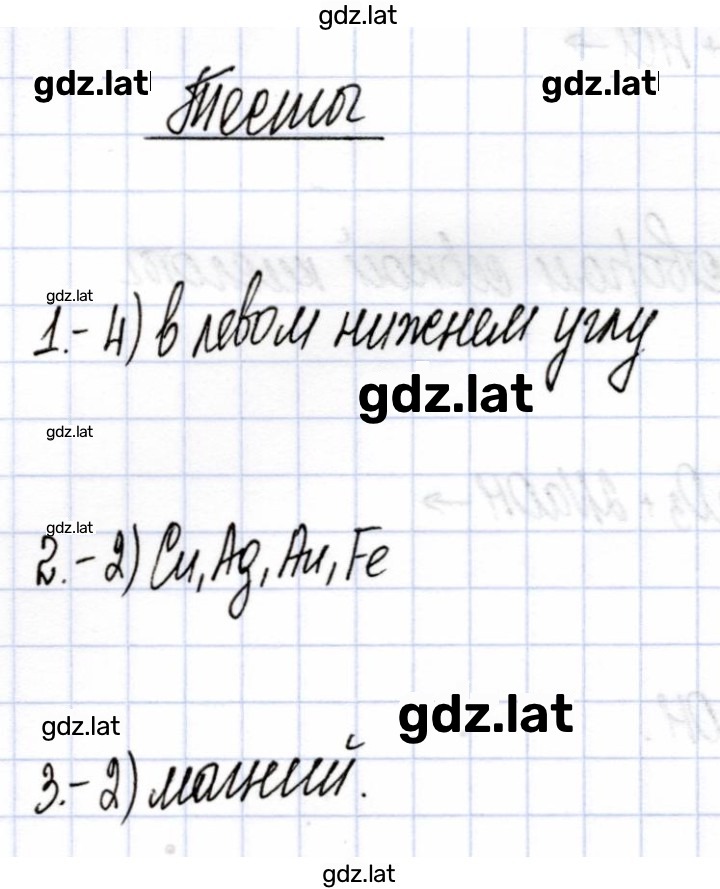 gdz.lat
gdz.lat gdz.lat
Тесты
gdz.lat
1.- 4) в левом нижнем углу
gdz.lat
gdz.lat
gdz.lat
2.- 2) Cu, Ag, Au, Fe
gdz.lat
gdz.lat
3.- 2) магний.
gdz.lat